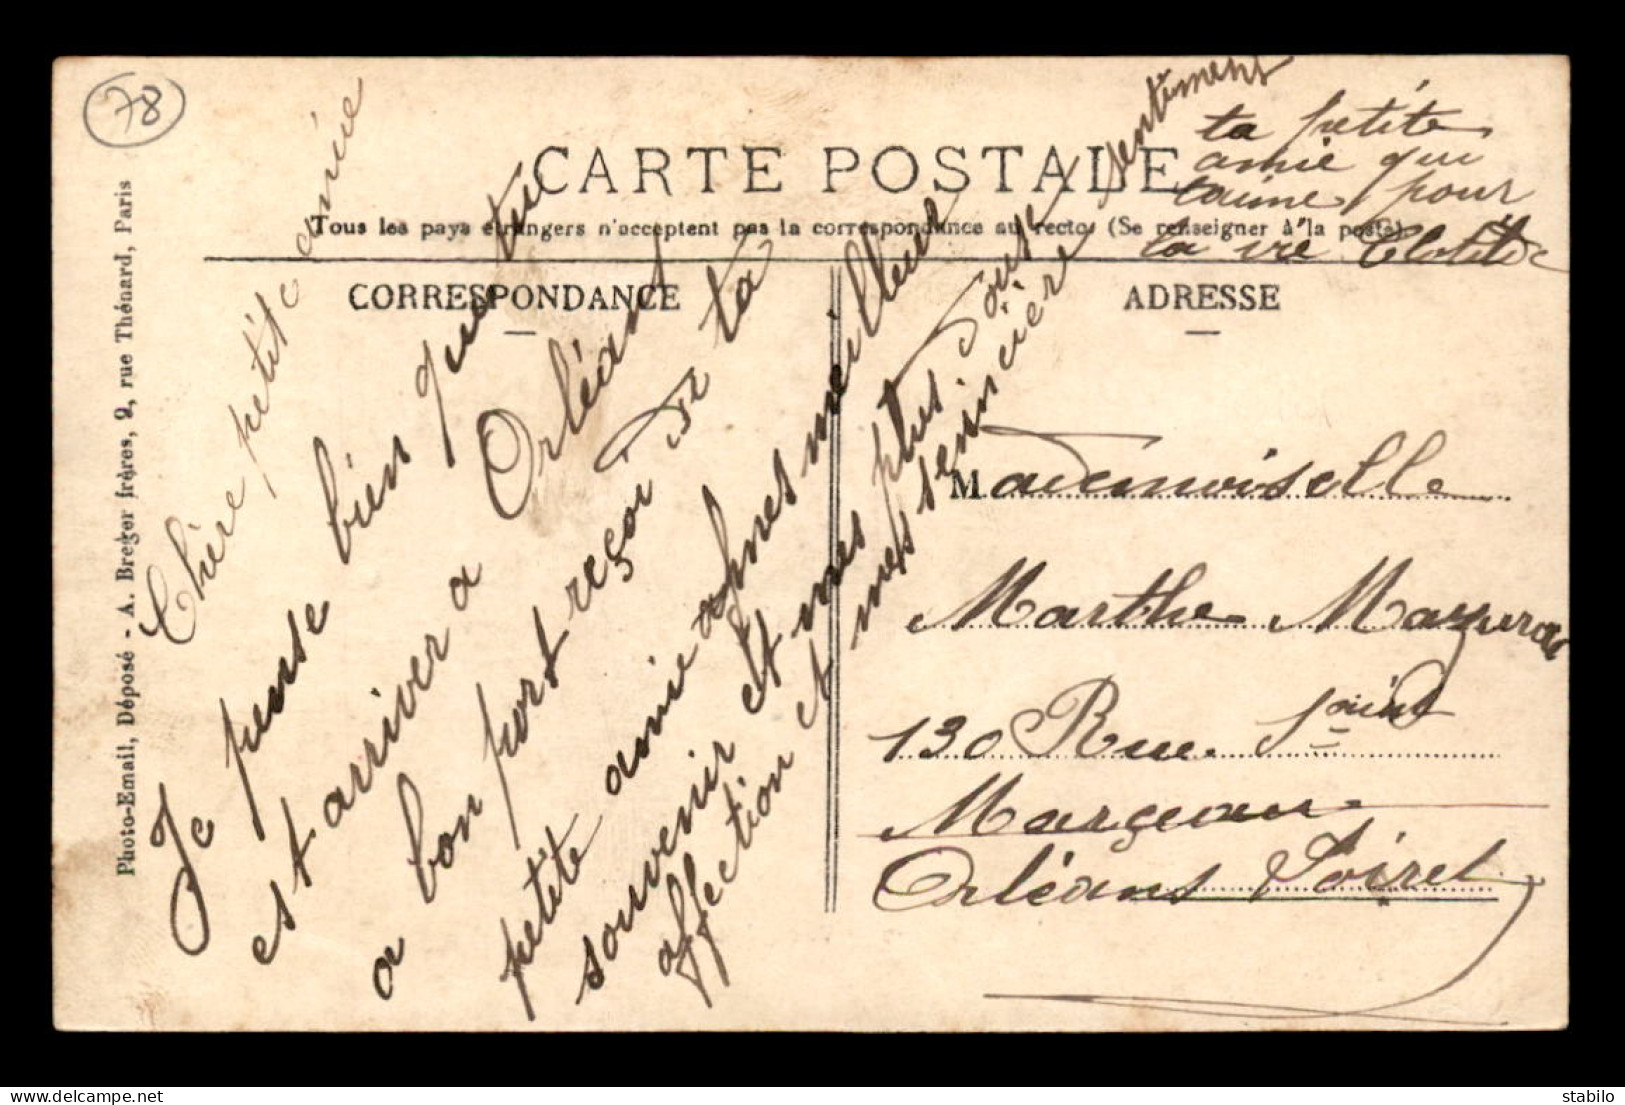 78
CARTE POSTALE
Tous les pays étrangers n'acceptent pas la correspondance au recto. (Se renseigner à la poste)
CORRESPONDANCE
ADRESSE
Photo-Email, Déposé - A. Breger frères, 9, rue Thénard, Paris
Chère petite amie
Je pense bien que tu
est arriver a Orléans
a bon port reçoi de ta
petite amie
souvenir
mes meilleur
et mes plus
affection
et mes senincière sentiment
ta petite
amie qui
taime pour
la vie Clotilde
Mademoiselle
Marthe
130 Rue Saint
Marçeau
Orléans Loiret
delcampe.net
stabilo